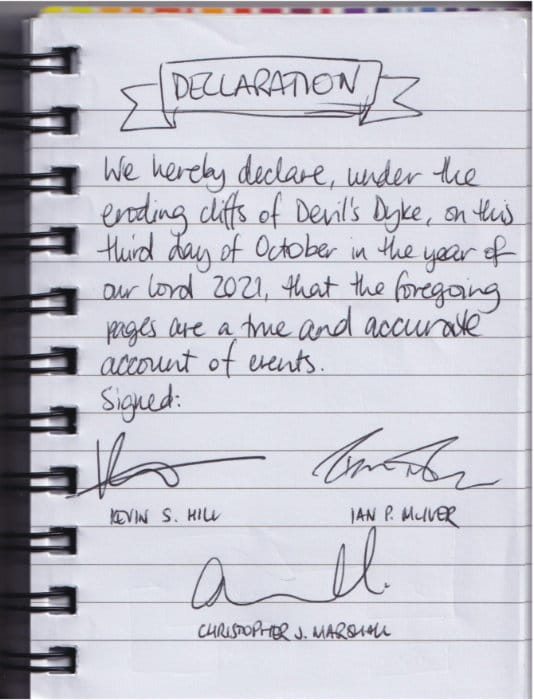 DECLARATION
We hereby declare, under the
eroding cliffs of Devil's Dyke, on this
third day of October in the year of
our Lord 2021, that the foregoing
pages are a true and accurate
account of events.
Signed:
KEVIN S. HILL IAN P. MCIVER
CHRISTOPHER J. MARSHALL